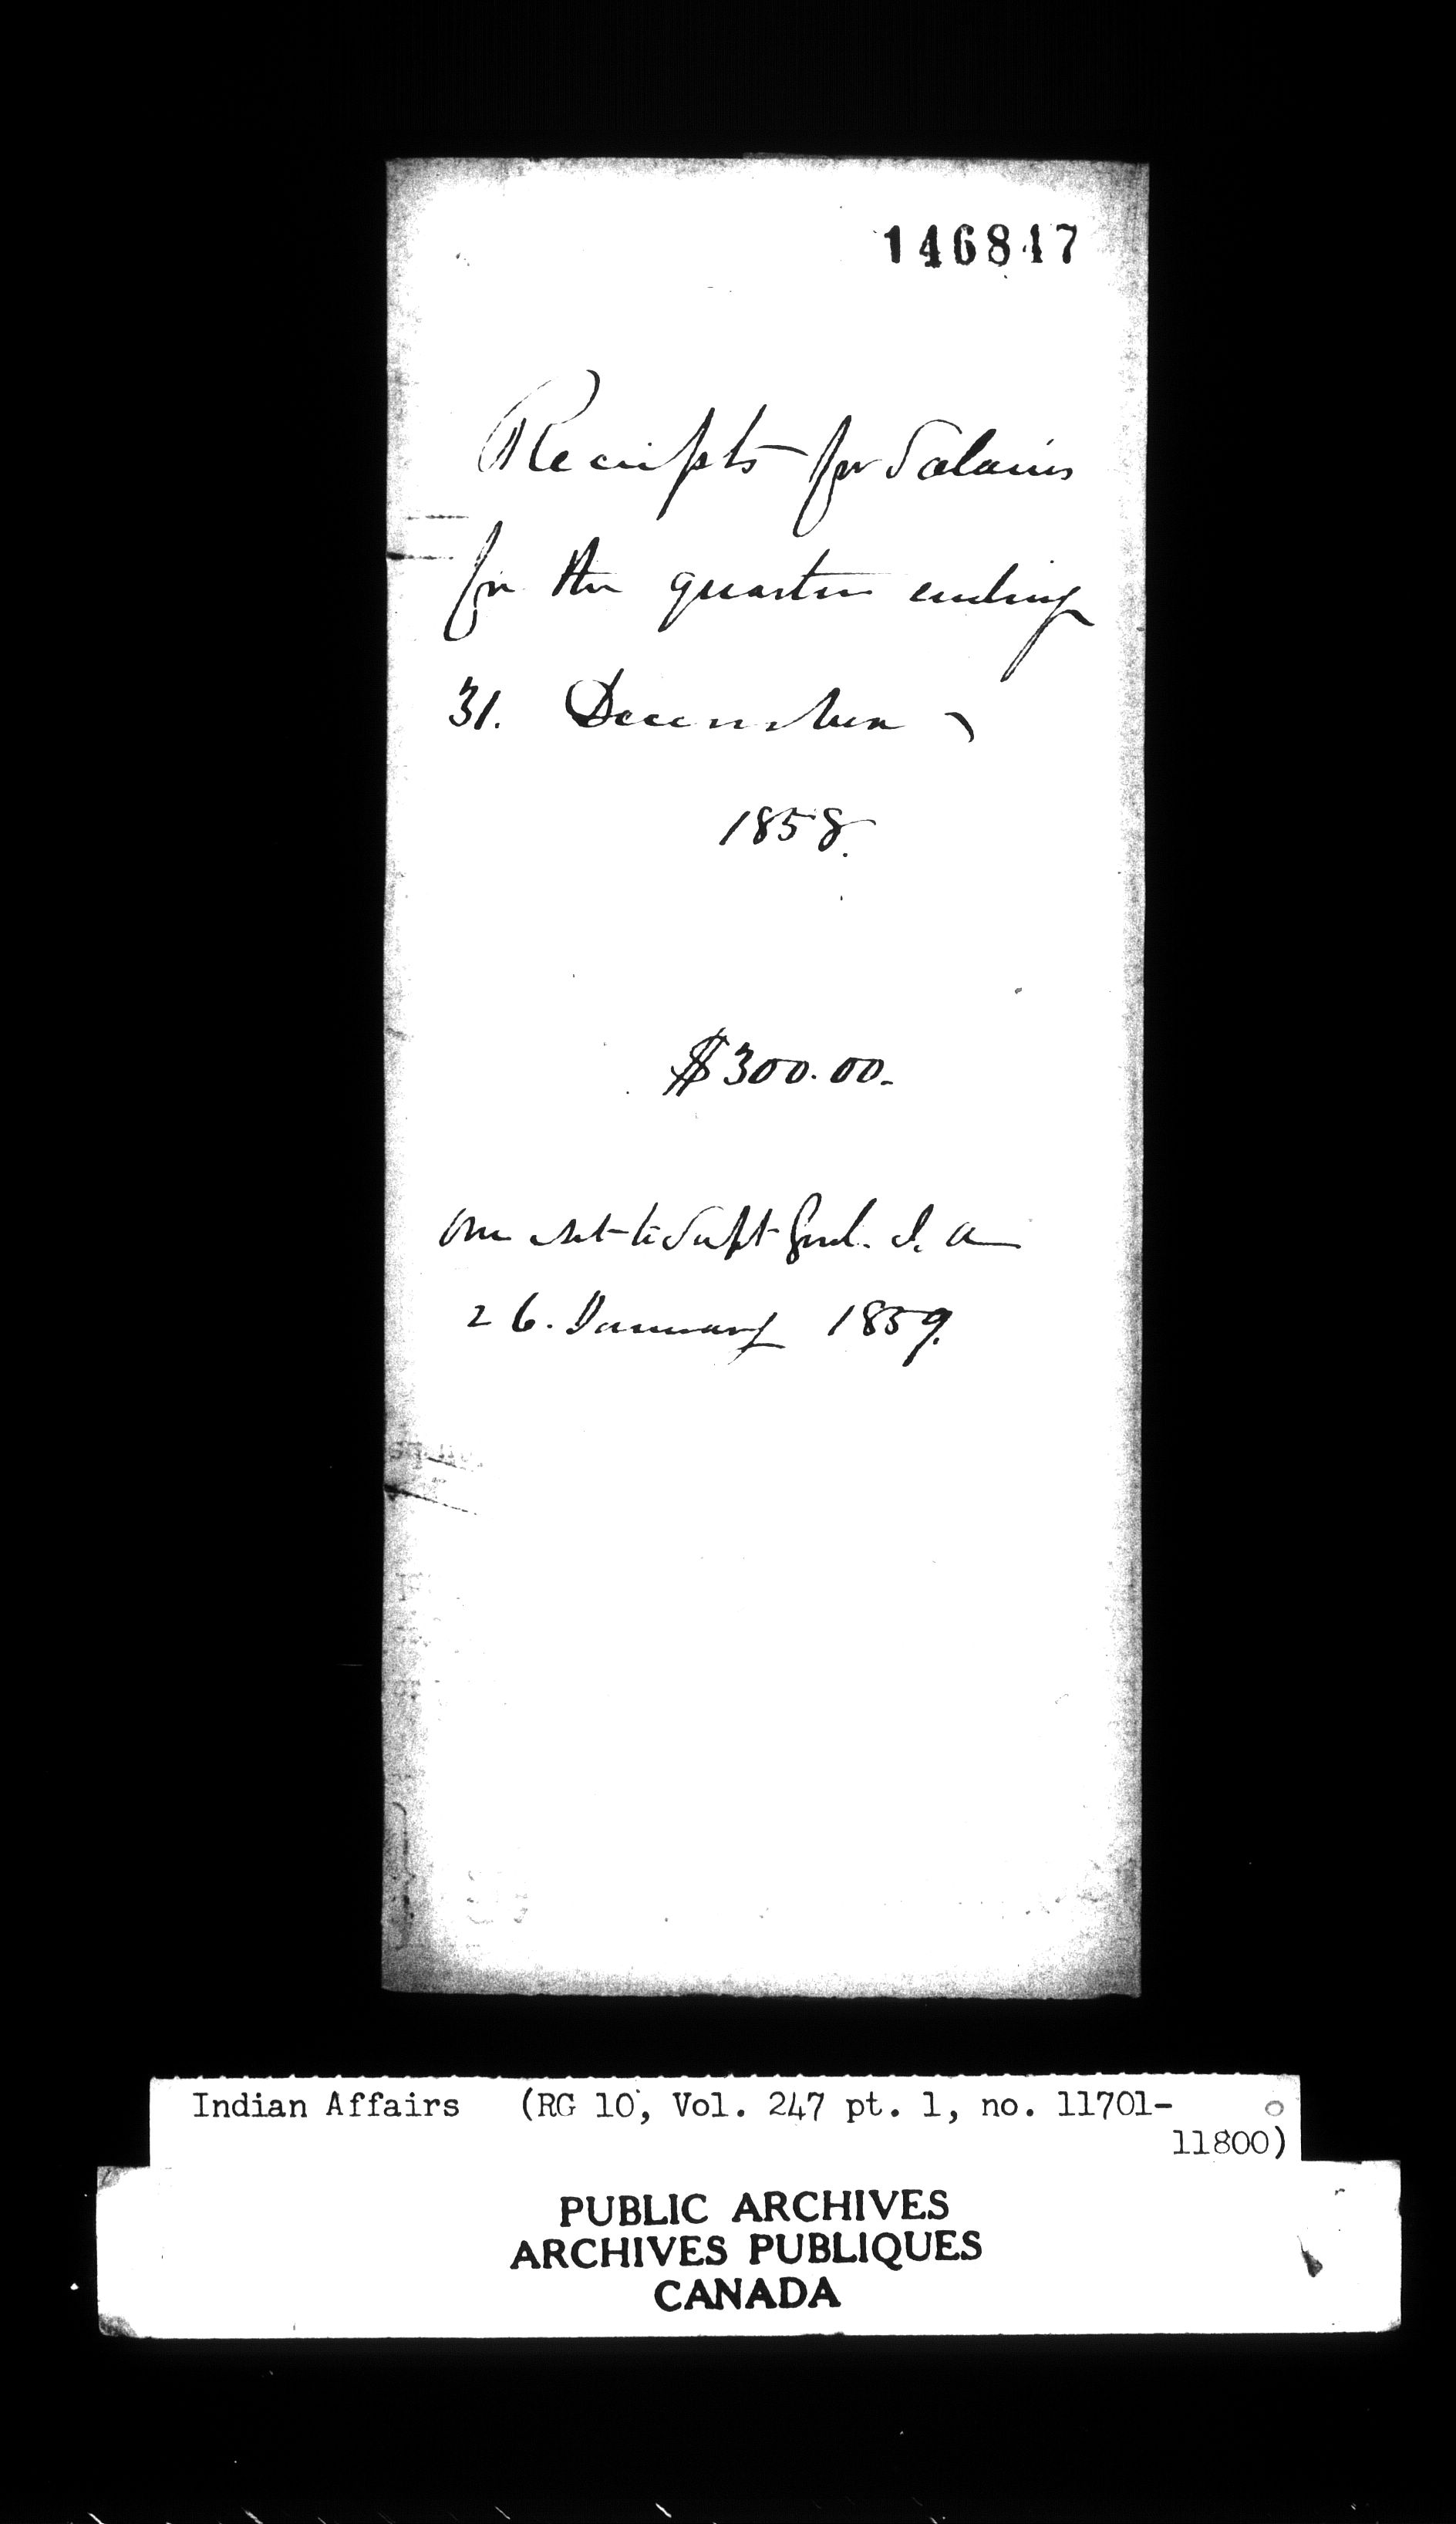 146817
Receipts for Salaries
for the quarter ending
31. December
1858.
$300.00.
One set to Supt Genl. I. A
26. January 1859.
Indian Affairs (RG 10, Vol. 247 pt. 1, no. 11701-
11800)
PUBLIC ARCHIVES
ARCHIVES PUBLIQUES
CANADA